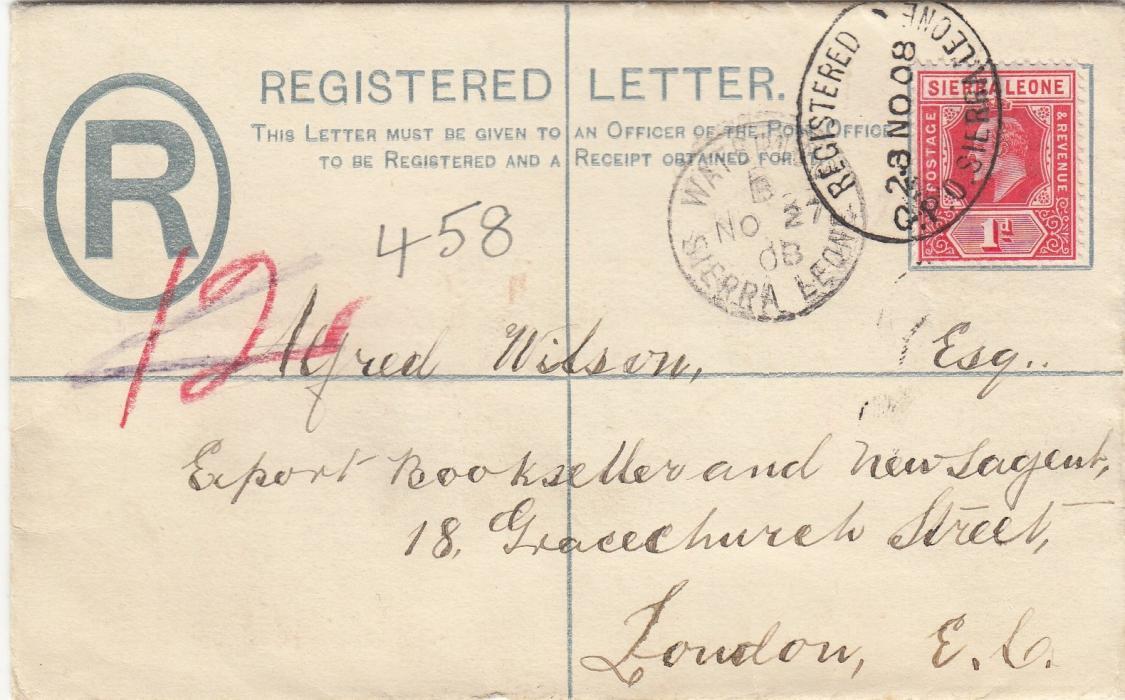 REGISTERED LETTER.
THIS LETTER MUST BE GIVEN TO AN OFFICER OF THE POST OFFICE
TO BE REGISTERED AND A RECEIPT OBTAINED FOR
R
REGISTERED
23 NO 08
G.P.O. SIERRA LEONE
SIERRA LEONE
POSTAGE
& REVENUE
1d
B
NO 27
08
SIERRA LEONE
458
12
Alfred Wilson, Esq..
Export Bookseller and Newsagent,
18, Gracechurch Street,
London, E.C.